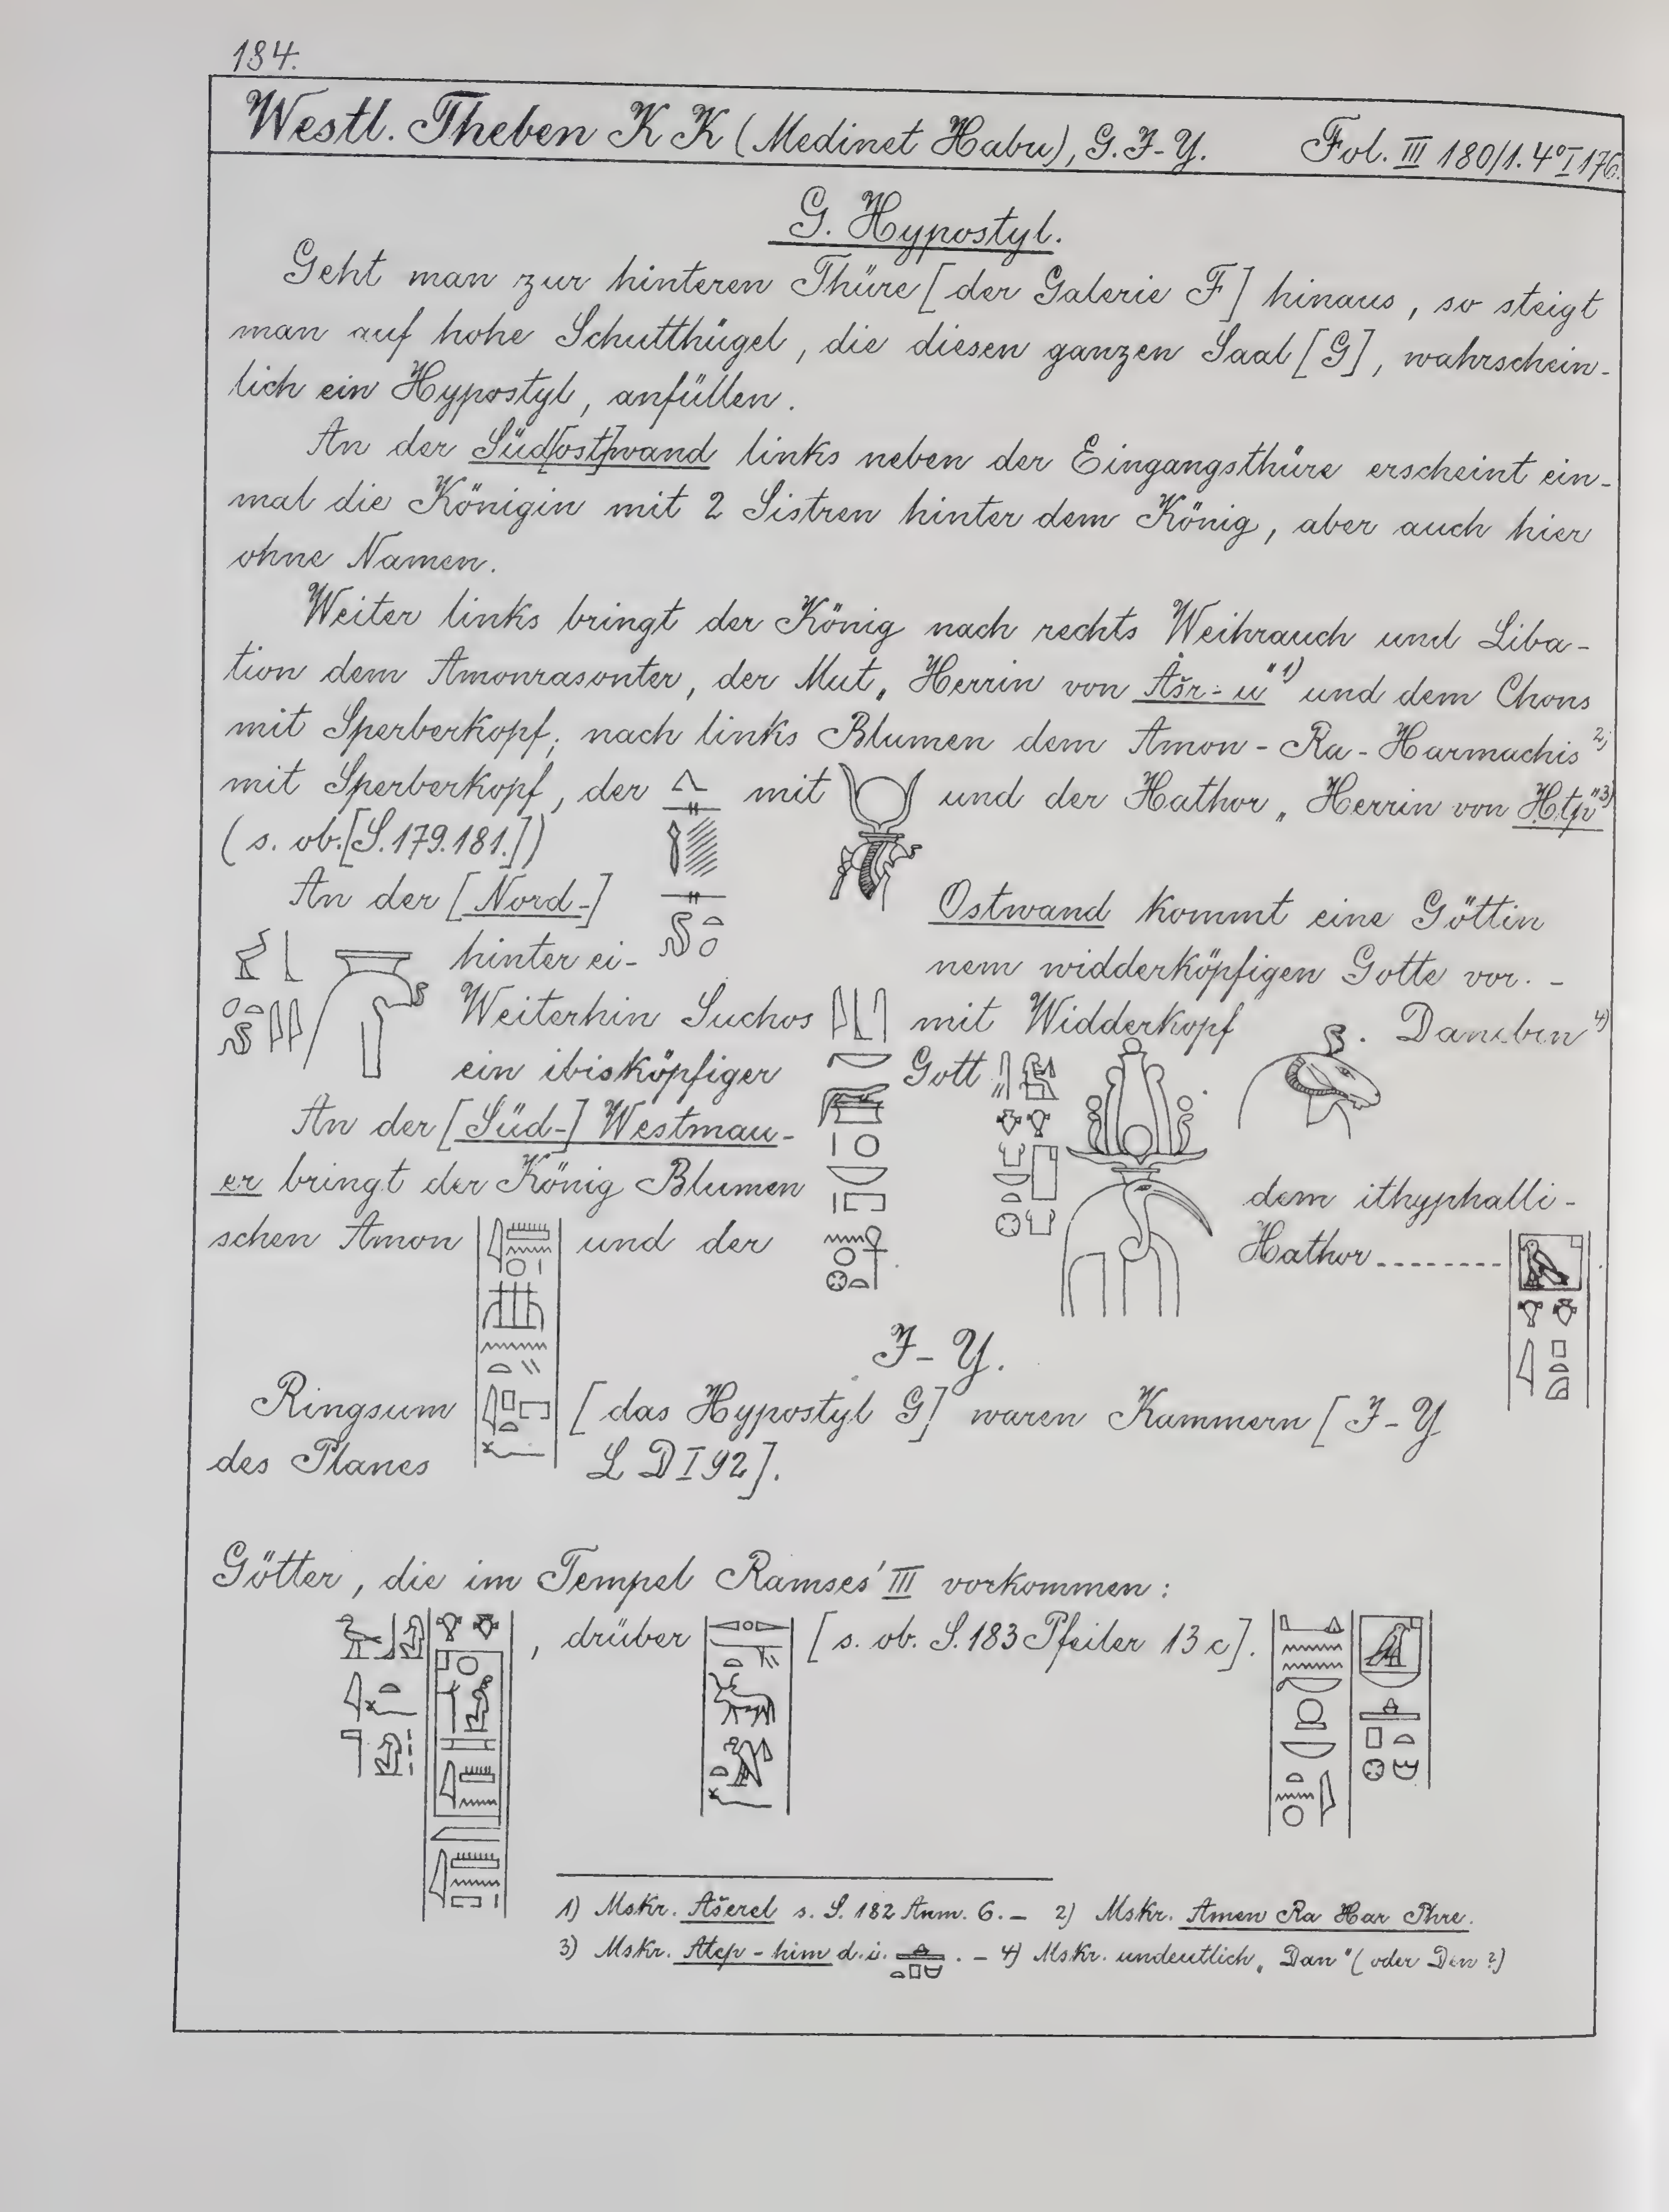 184.
Westl. Theben K K (Medinet Habu), G. J-Y. Fol. III 180/1. 4° I 176.
G. Hypostyl.
Geht man zur hinteren Thüre [der Galerie F] hinaus, so steigt
man auf hohe Schutthügel, die diesen ganzen Saal [G], wahrschein-
lich ein Hypostyl, anfüllen.
An der Süd[ost]wand links neben der Eingangsthüre erscheint ein-
mal die Königin mit 2 Sistren hinter dem König, aber auch hier
ohne Namen.
Weiter links bringt der König nach rechts Weihrauch und Liba-
tion dem Amonrasonter, der Mut „Herrin von Ȧšr-u“ 1) und dem Chons
mit Sperberkopf; nach links Blumen dem Amon-Ra-Harmachis 2)
mit Sperberkopf, der mit und der Hathor „Herrin von Ḥtp“ 3)
(s. ob. [S. 179. 181.])
An der [Nord-] Ostwand kommt eine Göttin
hinter ei- nem widderköpfigen Gotte vor. -
Weiterhin Suchos mit Widderkopf . Daneben 4)
ein ibisköpfiger Gott
An der [Süd-] Westmau-
er bringt der König Blumen dem ithyphalli-
schen Amon und der Hathor ........
J-Y.
Ringsum [das Hypostyl G] waren Kammern [J-Y
des Planes L D I 92].
Götter, die im Tempel Ramses' III vorkommen:
, drüber [s. ob. S. 183 Pfeiler 13 c].
1) Mskr. Ašerel s. S. 182 Anm. 6. — 2) Mskr. Amen Ra Har Phre.
3) Mskr. Atep-him d. i. . — 4) Mskr. undeutlich „Dan“ (oder Den?)